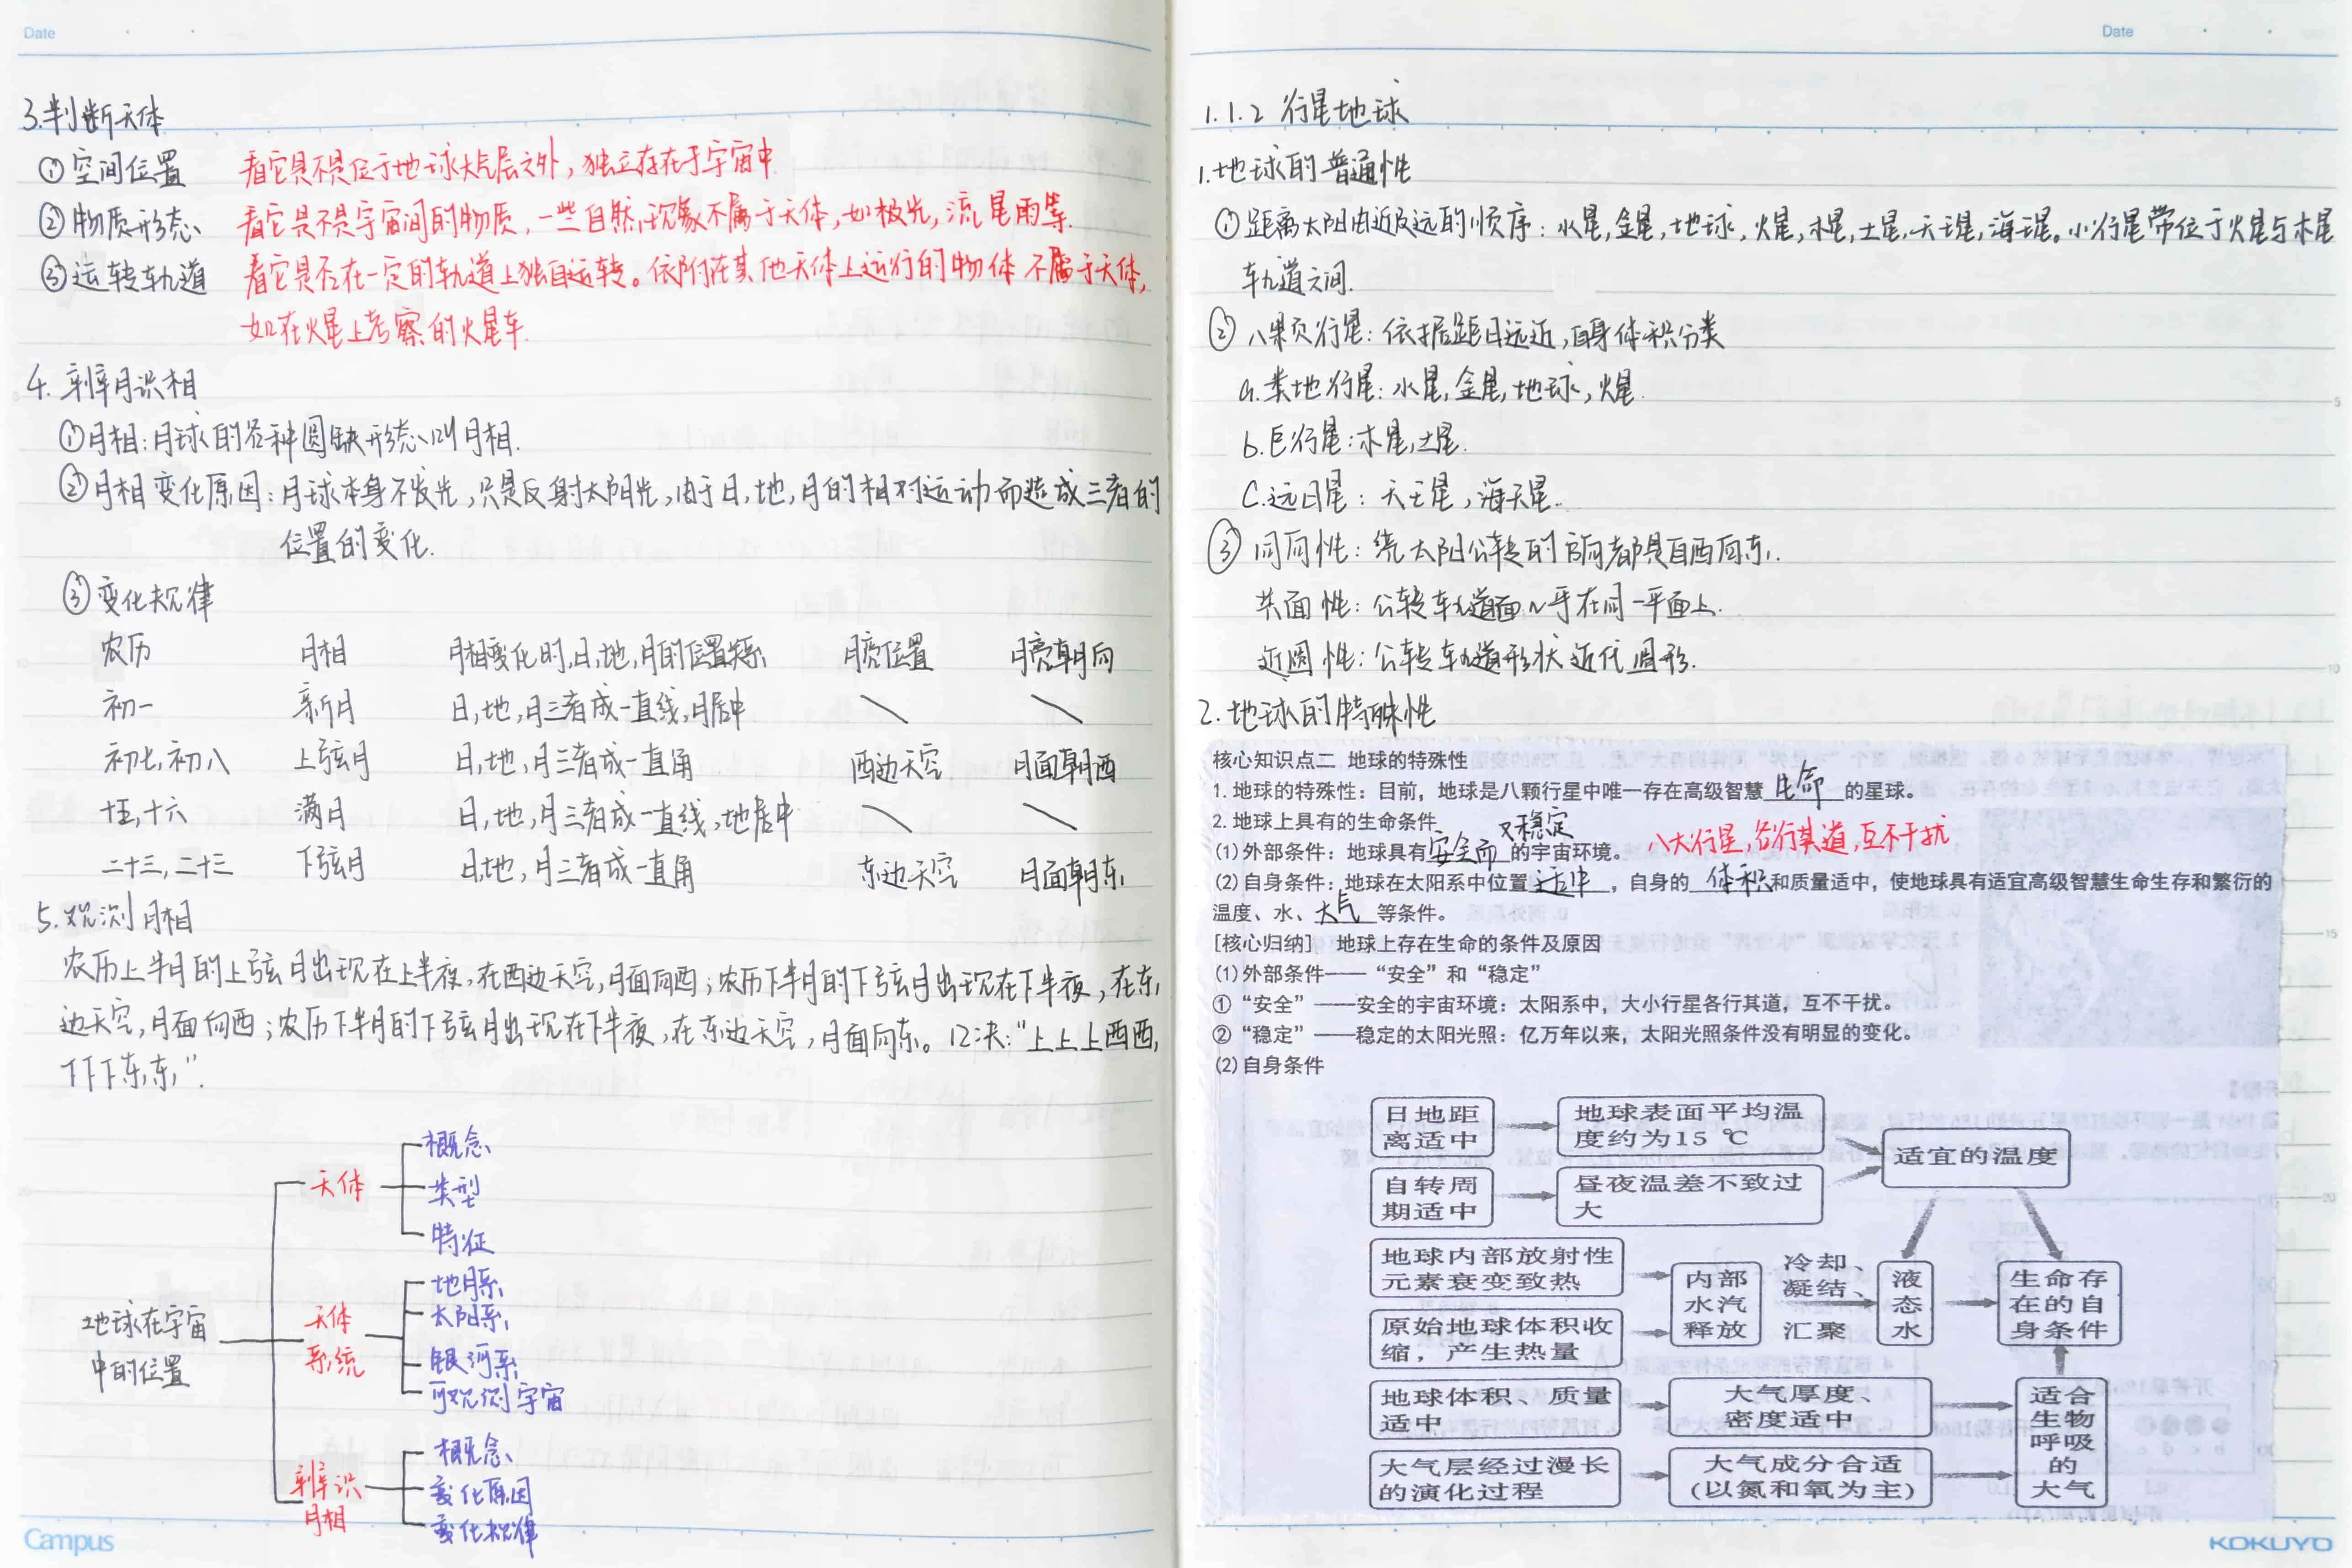 Date
3.判断天体
①空间位置 看它是不是位于地球大气层之外，独立存在于宇宙中
②物质形态 看它是不是宇宙间的物质，一些自然现象不属于天体，如极光，流星雨等.
③运转轨道 看它是否在一定的轨道上独自运转。依附在其他天体上运行的物体不属于天体，
如在火星上考察的火星车.
4.辨月识相
①月相:月球的各种圆缺形态叫月相.
②月相变化原因:月球本身不发光,只是反射太阳光,由于日,地,月的相对运动而造成三者的
位置的变化.
③变化规律
农历 月相 月相变化时,日,地,月的位置关系 月亮位置 月亮朝向
初一 新月 日,地,月三者成一直线,月居中 \ \
初七,初八 上弦月 日,地,月三者成一直角 西边天空 月面朝西
十五,十六 满月 日,地,月三者成一直线,地居中 \ \
二十三,二十三 下弦月 日,地,月三者成一直角 东边天空 月面朝东
5.观测月相
农历上半月的上弦月出现在上半夜,在西边天空,月面向西;农历下半月的下弦月出现在下半夜,在东
边天空,月面向西;农历下半月的下弦月出现在下半夜,在东边天空,月面向东。口决:"上上上西西,
下下下东东".
地球在宇宙
中的位置
天体
概念
类型
特征
天体
系统
地月系
太阳系
银河系
可观测宇宙
辨识
月相
概念
变化原因
变化规律
Campus
Date
1.1.2 行星地球
1.地球的普通性
①距离太阳由近及远的顺序:水星,金星,地球,火星,木星,土星,天王星,海王星。小行星带位于火星与木星
轨道之间.
②八颗行星:依据距日远近,自身体积分类
a.类地行星:水星,金星,地球,火星.
b.巨行星:木星,土星.
C.远日星:天王星,海天星.
③同向性:绕太阳公转的方向都是自西向东.
共面性:公转轨道面几乎在同一平面上.
近圆性:公转轨道形状近似圆形.
2.地球的特殊性
核心知识点二 地球的特殊性
1. 地球的特殊性：目前，地球是八颗行星中唯一存在高级智慧 生命 的星球。
2. 地球上具有的生命条件
(1)外部条件：地球具有 安全而又稳定 的宇宙环境。 八大行星,各行其道,互不干扰
(2)自身条件：地球在太阳系中位置 适中 ，自身的 体积 和质量适中，使地球具有适宜高级智慧生命生存和繁衍的
温度、水、 大气 等条件。
[核心归纳] 地球上存在生命的条件及原因
(1)外部条件——“安全”和“稳定”
①“安全”——安全的宇宙环境：太阳系中，大小行星各行其道，互不干扰。
②“稳定”——稳定的太阳光照：亿万年以来，太阳光照条件没有明显的变化。
(2)自身条件
日地距
离适中
地球表面平均温
度约为15 ℃
适宜的温度
自转周
期适中
昼夜温差不致过
大
地球内部放射性
元素衰变致热
原始地球体积收
缩，产生热量
内部
水汽
释放
冷却、
凝结、
汇聚
液
态
水
生命存
在的自
身条件
地球体积、质量
适中
大气厚度、
密度适中
大气层经过漫长
的演化过程
大气成分合适
(以氮和氧为主)
适合
生物
呼吸
的
大气
KOKUYO